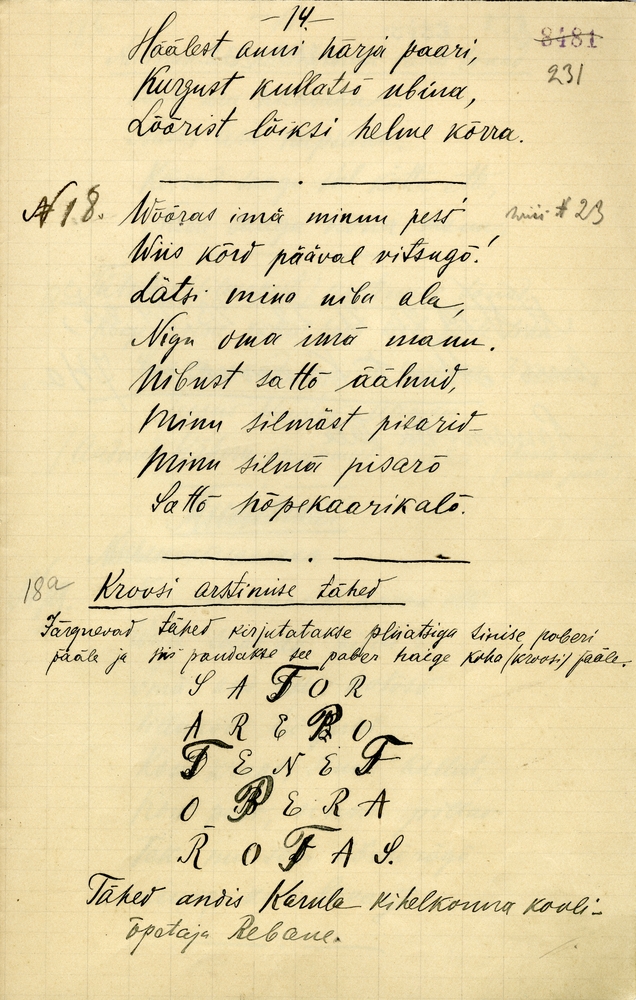 - 14. -
8481
231
Häälest anni härja paari,
Kurgust kullatsõ ubina,
Lõõrist lõiksi helme kõrra.
№ 18.
Wõõras imä minnu pess'
wiis # 23
Wiis kõrd pääval vitsugõ!
Lätsi mino niba ala,
Nigu oma imä manu.
Nibust sattõ äälmid,
Minu silmäst pisarid-
Minu silmä pisarõ
Sattõ hõpekaarikalõ.
18a
Kroosi arstimise tähed
Järgnevad tähed kirjutatakse pliiatsiga sinise paberi
pääle ja siis pandakse see paber haige koha (kroosi) pääle.
S A T O R
A R E P O
T E N E T
O P E R A
R O T A S.
Tähed andis Karula kihelkonna kooli-
õpetaja Rebane.